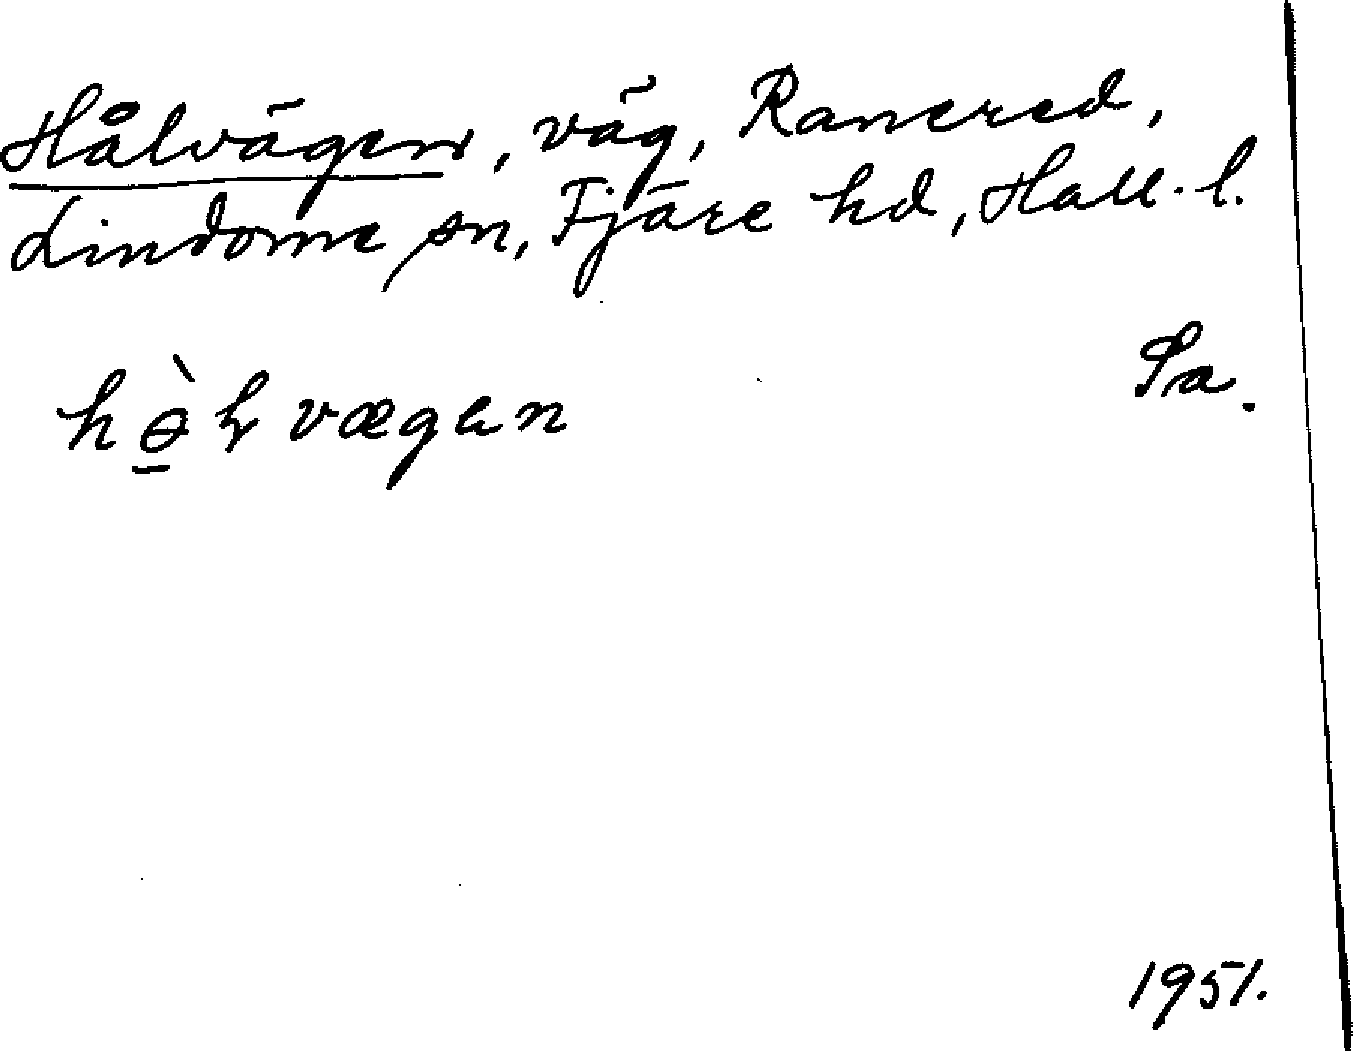 Hålvägen, väg, Ranered,
Lindome sn, Fjäre hd, Hall. l.
Sa.
hɵ̲̀ɫvægan
1951.